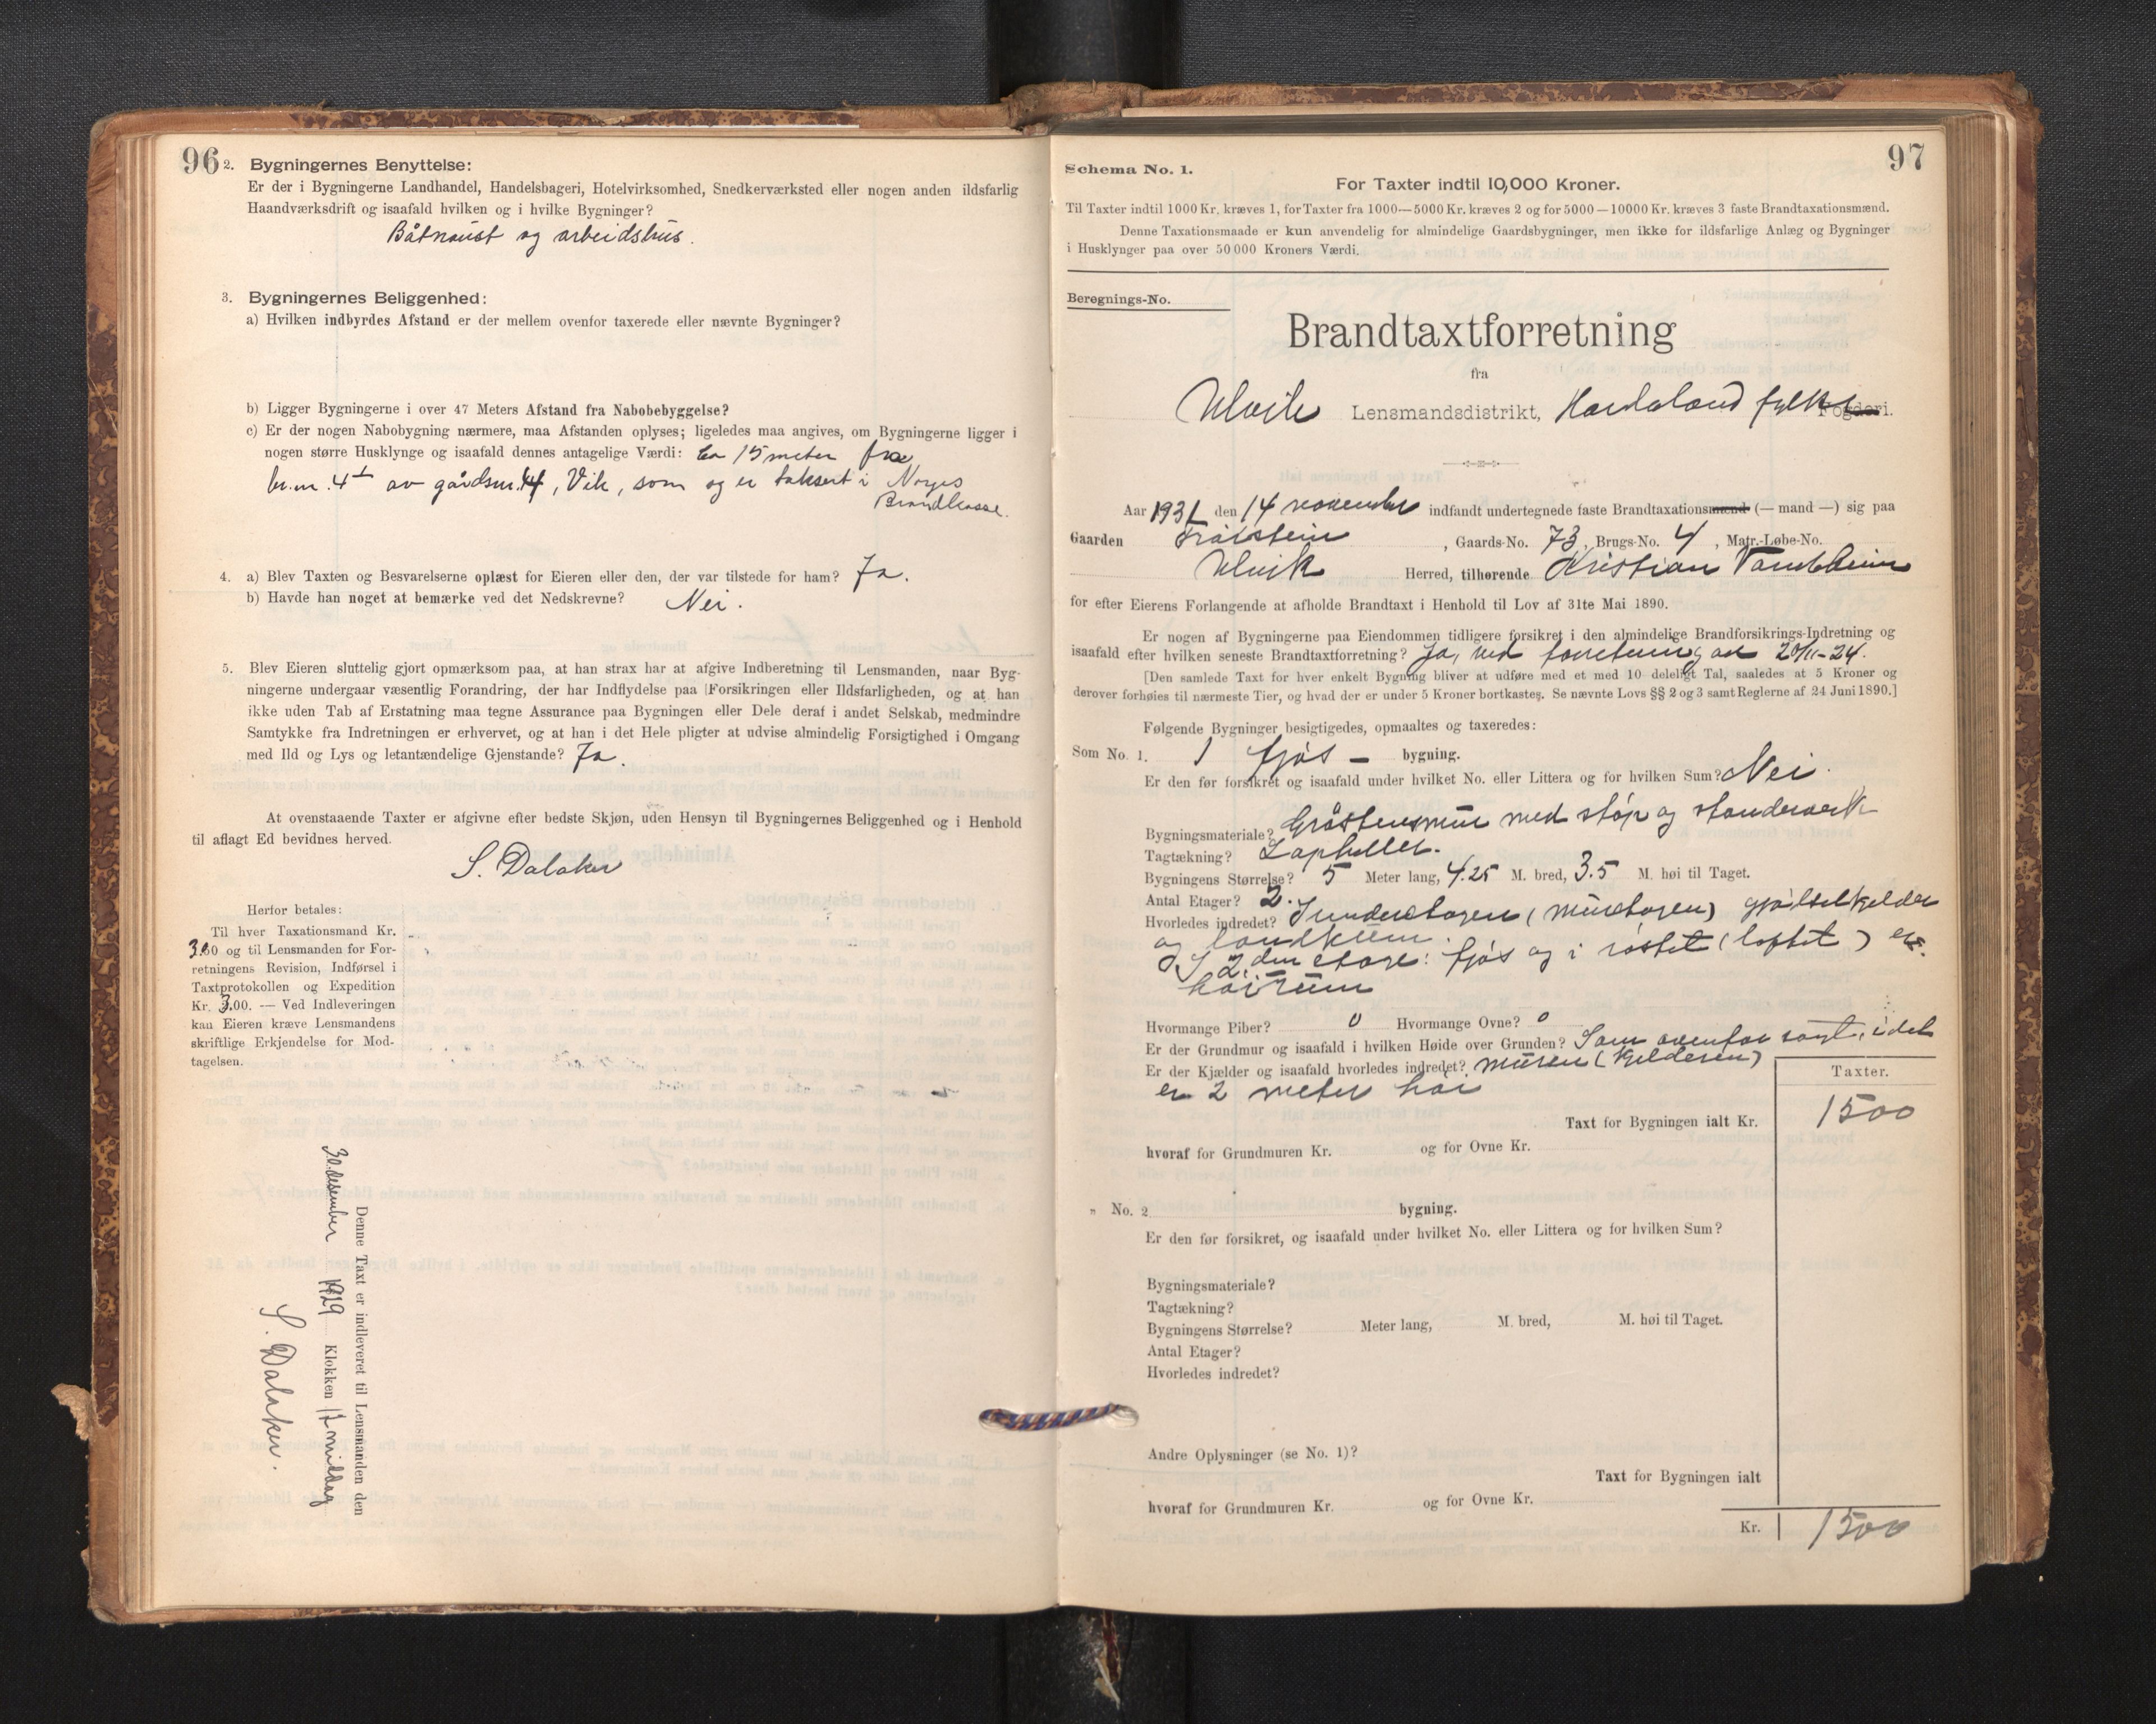 96
2. Bygningernes Benyttelse:
Er der i Bygningerne Landhandel, Handelsbageri, Hotelvirksomhed, Snedkerværksted eller nogen anden ildsfarlig
Haandværksdrift og isaafald hvilken og i hvilke Bygninger?
Båtnaust og arbeidshus.
3. Bygningernes Beliggenhed:
a) Hvilken indbyrdes Afstand er der mellem ovenfor taxerede eller nævnte Bygninger?
b) Ligger Bygningerne i over 47 Meters Afstand fra Nabobebyggelse?
c) Er der nogen Nabobygning nærmere, maa Afstanden oplyses; ligeledes maa angives, om Bygningerne ligger i
nogen større Husklynge og isaafald dennes antagelige Værdi: ca 15 meter fra
br.nr. 4 av gårdsnr. 44, Vik, som og er taksert i Norges
Brandkasse.
4. a) Blev Taxten og Besvarelserne oplæst for Eieren eller den, der var tilstede for ham? Ja.
b) Havde han noget at bemærke ved det Nedskrevne? Nei.
5. Blev Eieren sluttelig gjort opmærksom paa, at han strax har at afgive Indberetning til Lensmanden, naar Byg-
ningerne undergaar væsentlig Forandring, der har Indflydelse paa Forsikringen eller Ildsfarligheden, og at han
ikke uden Tab af Erstatning maa tegne Assurance paa Bygningen eller Dele deraf i andet Selskab, medmindre
Samtykke fra Indretningen er erhvervet, og at han i det Hele pligter at udvise almindelig Forsigtighed i Omgang
med Ild og Lys og letantændelige Gjenstande? Ja.
At ovenstaaende Taxter er afgivne efter bedste Skjøn, uden Hensyn til Bygningernes Beliggenhed og i Henhold
til aflagt Ed bevidnes herved.
S. Dalaker
Herfor betales:
Til hver Taxationsmand Kr.
3.60 og til Lensmanden for For-
retningens Revision, Indførsel i
Taxtprotokollen og Expedition
Kr. 3.00. — Ved Indleveringen
kan Eieren kræve Lensmandens
skriftlige Erkjendelse for Mod-
tagelsen.
Denne Taxt er indleveret til Lensmanden den
30. desember 1929 Klokken 12 middag
S. Dalaker.
97
Schema No. 1.
For Taxter indtil 10,000 Kroner.
Til Taxter indtil 1000 Kr. kræves 1, for Taxter fra 1000—5000 Kr. kræves 2 og for 5000—10000 Kr. kræves 3 faste Brandtaxationsmænd.
Denne Taxationsmaade er kun anvendelig for almindelige Gaardsbygninger, men ikke for ildsfarlige Anlæg og Bygninger
i Husklynger paa over 50 000 Kroners Værdi.
Beregnings-No.
Brandtaxtforretning
fra
Ulvik Lensmandsdistrikt, Hordaland fylke Fogderi.
Aar 1931 den 14 november indfandt undertegnede faste Brandtaxationsmænd (— mand —) sig paa
Gaarden Trålstein, Gaards-No. 73, Brugs-No. 4, Matr.-Løbe-No.
Ulvik Herred, tilhørende Kristian Vambheim
for efter Eierens Forlangende at afholde Brandtaxt i Henhold til Lov af 31te Mai 1890.
Er nogen af Bygningerne paa Eiendommen tidligere forsikret i den almindelige Brandforsikrings-Indretning og
isaafald efter hvilken seneste Brandtaxtforretning? Ja, ved forretning av 20/11-24.
[Den samlede Taxt for hver enkelt Bygning bliver at udføre med et med 10 deleligt Tal, saaledes at 5 Kroner og
derover forhøies til nærmeste Tier, og hvad der er under 5 Kroner bortkastes. Se nævnte Lovs §§ 2 og 3 samt Reglerne af 24 Juni 1890.]
Følgende Bygninger besigtigedes, opmaaltes og taxeredes:
Som No. 1. 1 fjøs — bygning.
Er den før forsikret og isaafald under hvilket No. eller Littera og for hvilken Sum? Nei.
Bygningsmateriale? Gråstensmur med støp og standerverk
Tagtækning? Zapheller.
Bygningens Størrelse? 5 Meter lang, 4.25 M. bred, 3.5 M. høi til Taget.
Antal Etager? 2.
Hvorledes indredet? I underetagen (muretagen) gjødselkjelder
og landkum.
I 2. den etage: fjøs og i røstet (loftet) er
høirum
Hvormange Piber? 0 Hvormange Ovne? 0
Er der Grundmur og isaafald i hvilken Høide over Grunden? Som ovenfor sagt, idet
Er der Kjælder og isaafald hvorledes indredet? muren (kjelderen)
er 2 meter høi
Taxter.
Taxt for Bygningen ialt Kr. 1500
hvoraf for Grundmuren Kr. og for Ovne Kr.
" No. 2 bygning.
Er den før forsikret, og isaafald under hvilket No. eller Littera og for hvilken Sum?
Bygningsmateriale?
Tagtækning?
Bygningens Størrelse? Meter lang, M. bred, M. høi til Taget.
Antal Etager?
Hvorledes indredet?
Andre Oplysninger (se No. 1)?
Taxt for Bygningen ialt
hvoraf for Grundmuren Kr. og for Ovne Kr.
Kr. 1500